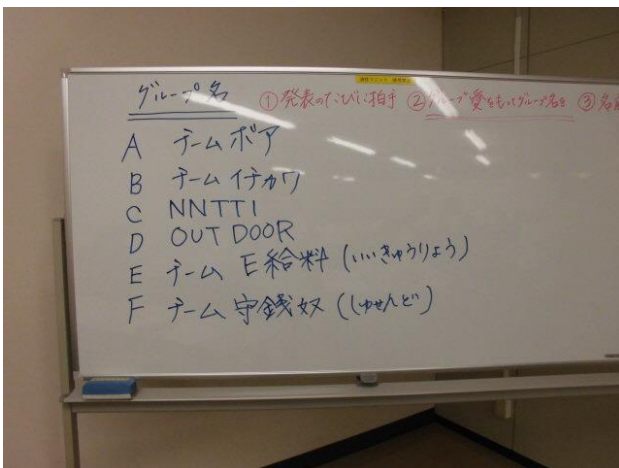 グループ名
①発表のたびに拍手 ②グループ愛をもってグループ名を ③名
A チームボア
B チームイチカワ
C NNTTI
D OUT DOOR
E チームE給料(いいきゅうりょう)
F チーム守銭奴(しゅせんど)